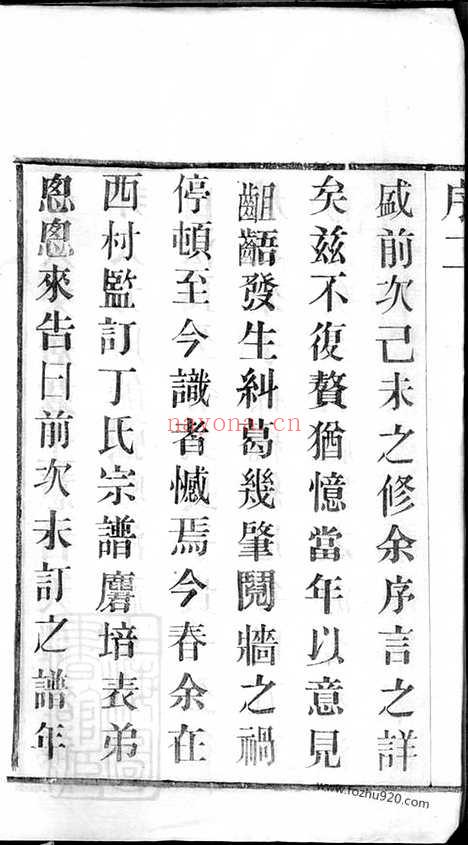 序二
盛前次己未之修余序言之詳
矣兹不復贅猶憶當年以意見
齟齬發生糾葛幾肇鬩牆之禍
停頓至今識者憾焉今春余在
西村監訂丁氏宗譜麐培表弟
悤悤來告曰前次未訂之譜年
nayonai.cn
www.fozhu920.com